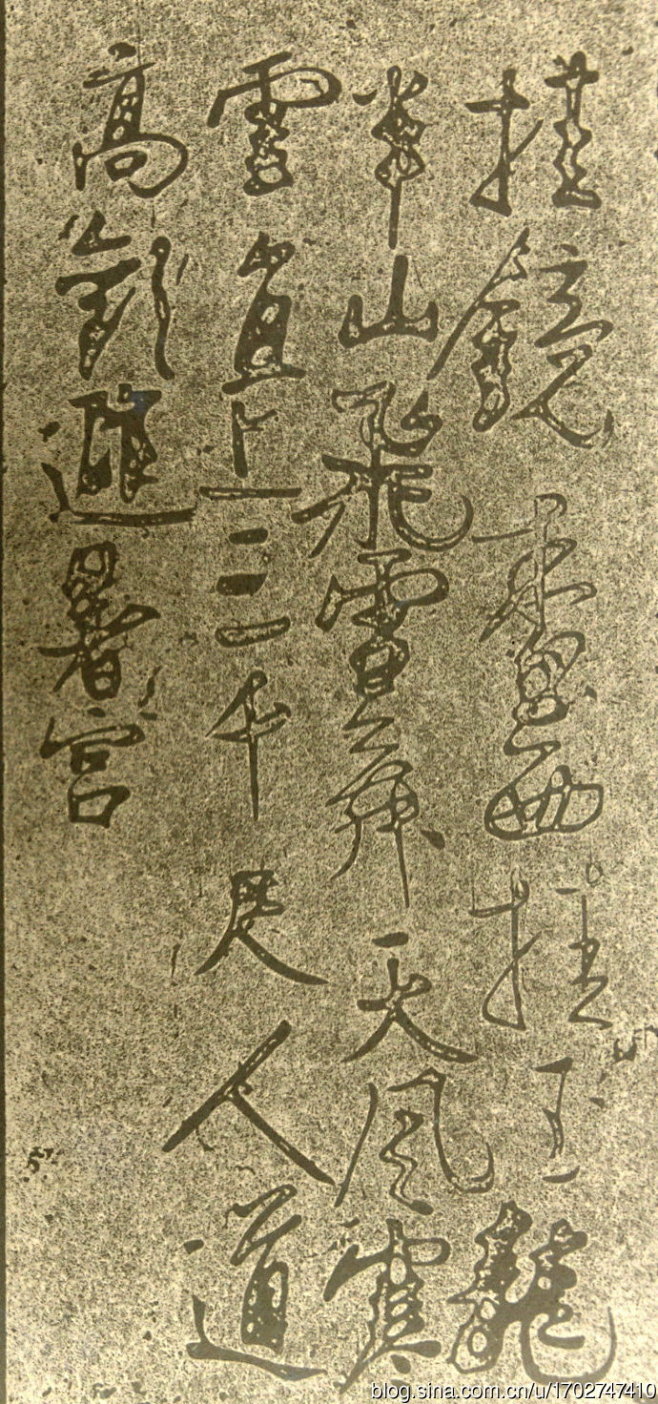 挂鏡臺西挂玉龍
半山飛雪舞天風寒
雲直上三千尺人道
高歡避暑宮
blog.sina.com.cn/u/1702747410